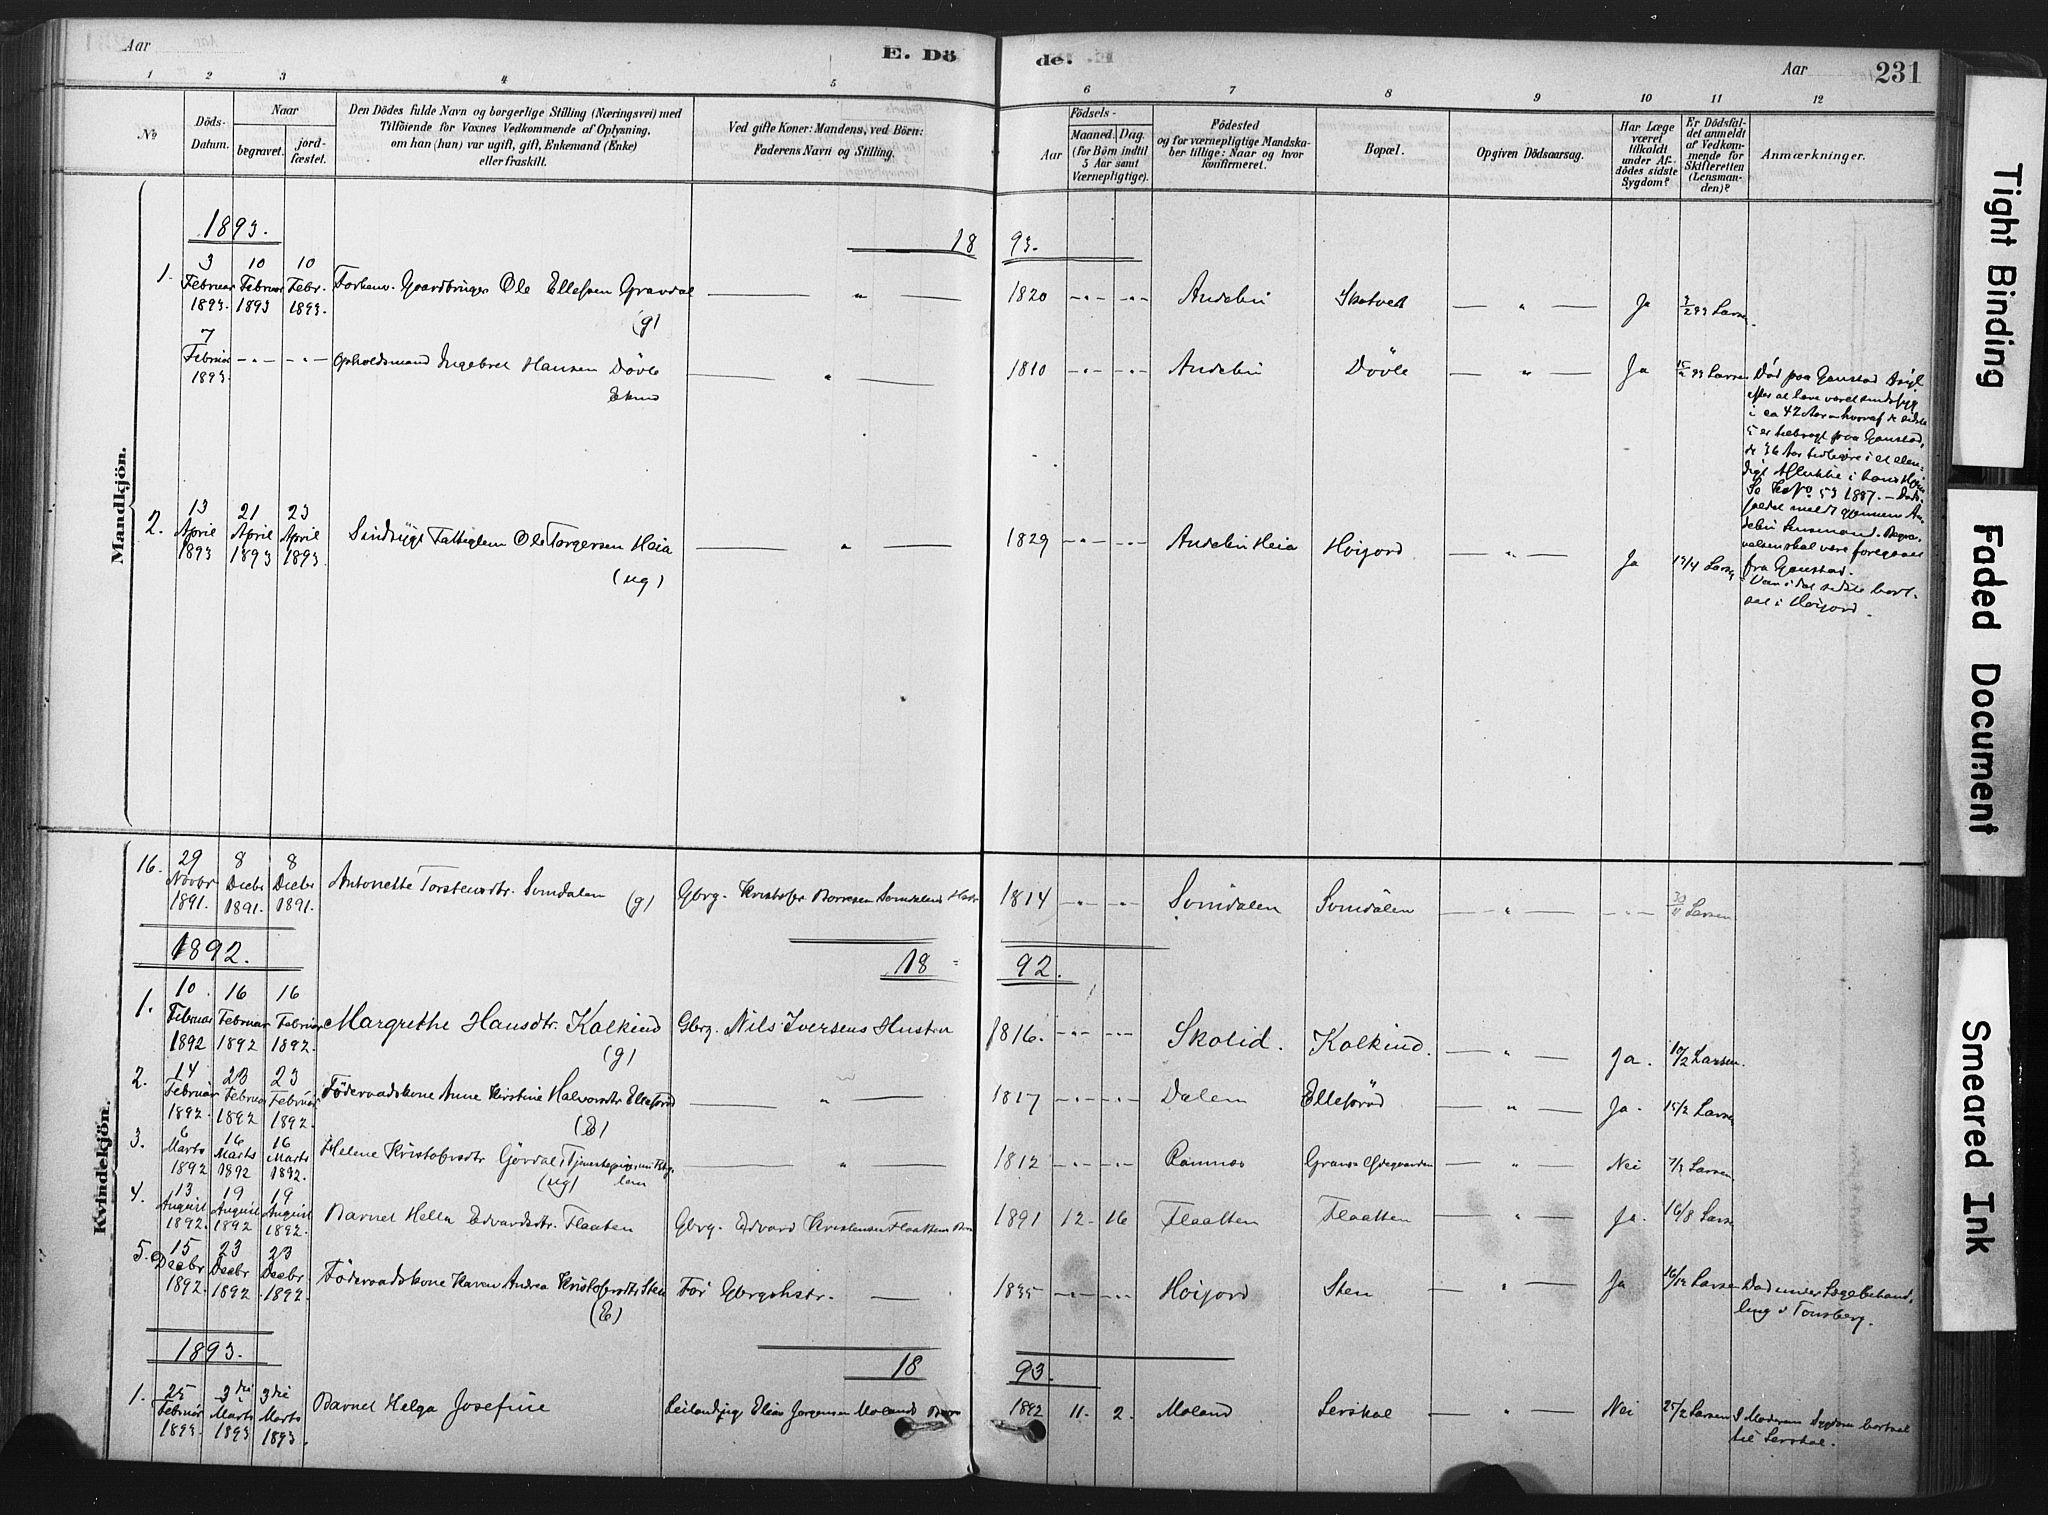 Aar
E. Dö
de.
Aar
231
1 2 3 4 5
6 7 8 9 10 11 12
No
Döds-
Datum.
Naar
begravet.
jord-
fæstet.
Den Dödes fulde Navn og borgerlige Stilling (Næringsvei) med
Tilföiende for Voxnes Vedkommende af Oplysning,
om han (hun) var ugift, gift, Enkemand (Enke)
eller fraskilt.
Ved gifte Koner: Mandens, ved Börn:
Faderens Navn og Stilling.
Födsels-
Aar
Maaned. Dag.
(for Börn indtil
5 Aar samt
Værnepligtige).
Födested
og for værnepligtige Mandska-
ber tillige: Naar og hvor
konfirmeret.
Bopæl.
Opgiven Dödsaarsag.
Har Læge
været
tilkaldt
under Af-
dödes sidste
Sygdom?
Er Dödsfal-
det anmeldt
af Vedkom-
mende for
Skifteretten
(Lensman-
den)?
Anmærkninger.
Mandkjön.
1893.
18 93.
1. 3 Februar 1893. 10 Februar 1893 10 Febr. 1893. Forhenv. Gaardbruger Ole Ellefsen Gravdal (g) — " — 1820 -"- -"- Andebu Skotvedt — " — Ja 3/2 93 Larsen.
7 Februar 1893. -"- -"- Opholdsmand Ingebret Hansen Dövle Ekmd — " — 1810 -"- -"- Andebu Dövle — " — Ja 15/2 93 Larsen
Död paa Gaustad Asyl
efter at have været sindssyg
i ca 42 Aar hvoraf de sidste
5 er tilbragt paa Gaustad,
de 36 Aar tidligere i et elen-
digt Aflukke i hans Hjem
Se No 53 1887. — Döds-
faldet meldt gjennem An-
debu Lensmand. Begra-
velsen skal være foregaaet
fra Gaustad.
2. 13 April 1893 21 April 1893 23 April 1893. Sindssygt Fattiglem Ole Torgersen Heia (ug) — " — 1829 -"- -"- Andebu Heia Höijord — " — Ja 13/4 Larsen
Var i det sidste bort-
sat i Höijord.
Kvindekjön.
16. 29 Novbr 1891. 8 Decbr 1891. 8 Decbr 1891. Antonette Torstensdtr. Somdalen (g) Gbrg. Kristofer Borresen Somdalens 1814 -"- -"- Somdalen Somdalen — " — -"- 30/11 Larsen
1892.
18 92.
1. 10 Februar 1892 16 Februar 1892 16 Februar 1892. Margrethe Hansdtr. Kolkind (g) Gbrg. Nils Iversens Hustru 1816. -"- -"- Skolid. Kolkind. — " — Ja. 10/2 Larsen.
2. 14 Februar 1892. 23 Februar 1892 23 Februar 1892. Föderaadskone Anne Kirstine Halvorsdtr Elleföröd (E) — " — 1817 -"- -"- Dalen Elleföröd — " — Ja. 15/2 Larsen
3. 6 Marts 1892 16 Marts 1892 16 Marts 1892. Helene Kristofersdtr Gjerdal, Tjenestepige (ug) — " — 1812 -"- -"- Ramnæs — " — Nei 7/3 Larsen
4. 13 August 1892. 19 August 1892 19 August 1892. Barnet Hella Edvardsdtr. Flaaten Gbrg. Edvard Kristensen Flaattens Barn 1891 12. 16 Flaatten Flaatten — " — Ja. 16/8 Larsen
5. 15 Decbr 1892. 23 Decbr 1892 23 Decbr 1892. Föderaadskone Karen Andrea Kristofersdtr Sten (E) For Gbrgshstr. — 1835 -"- -"- Höijord Sten — " — Ja 16/12 Larsen Död under Lægebehand-
ling i Tönsberg.
1893.
18 93.
1. 25 Februar 1893. 3die Marts 1893 3die Marts 1893. Barnet Helga Josefine Leilænding Elias Jorgensen Molands Barn 1892 11. 2. Moland Lerskal — " — Nei 25/2 Larsen I Moderens Sygdom bortsat
til Lerskal.
Tight Binding
Faded Document
Smeared Ink